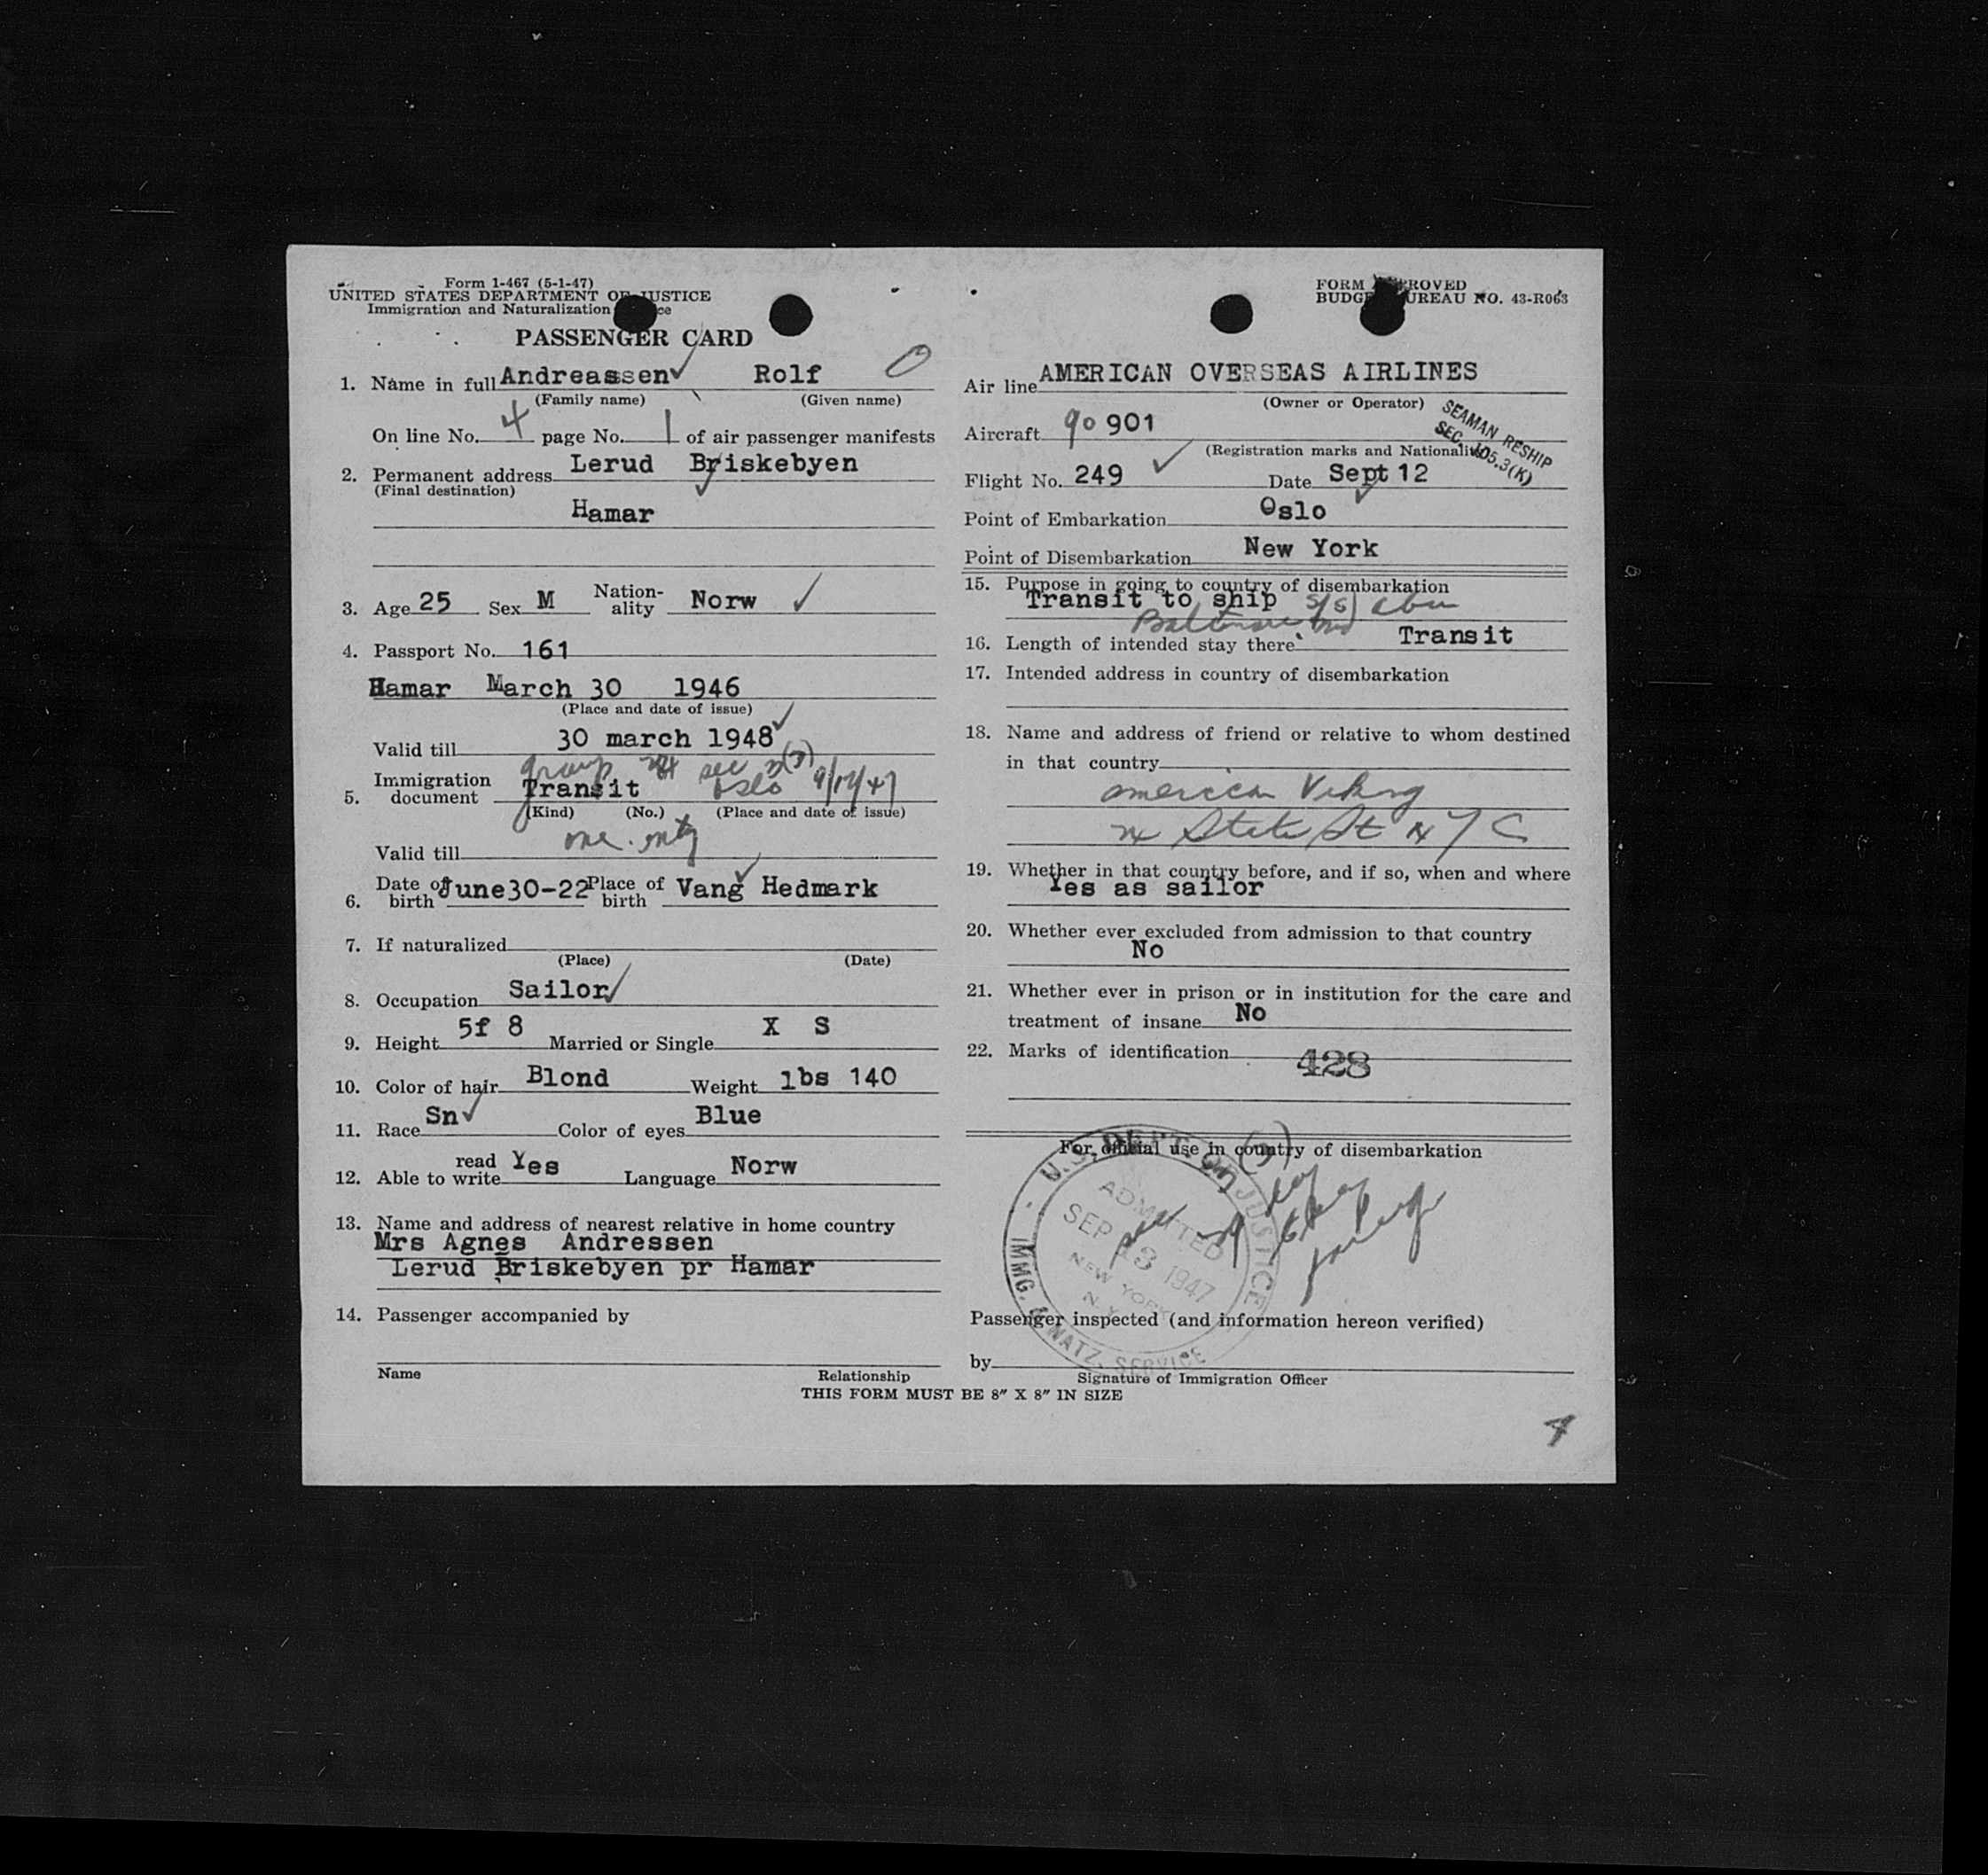 Form 1-467 (5-1-47)
UNITED STATES DEPARTMENT OF JUSTICE
Immigration and Naturalization
PASSENGER CARD
1. Name in full Andreassen Rolf
(Family name) (Given name)
On line No. 4 page No. 1 of air passenger manifests
2. Permanent address Lerud Briskebyen
(Final destination)
Hamar
3. Age 25 Sex M Nation-ality Norw
4. Passport No. 161
Hamar March 30 1946
(Place and date of issue)
Valid till 30 march 1948
group sec
5. Immigration document Transit Oslo
(Kind) (No.) (Place and date of issue)
Valid till one
6. Date of birth June30-22 Place of birth Vang Hedmark
7. If naturalized
(Place) (Date)
8. Occupation Sailor
9. Height 5f 8 Married or Single X S
10. Color of hair Blond Weight lbs 140
11. Race Sn Color of eyes Blue
12. Able to read write Yes Language Norw
13. Name and address of nearest relative in home country
Mrs Agnes Andressen
Lerud Briskebyen pr Hamar
14. Passenger accompanied by
Name Relationship
FORM APPROVED
BUDGET BUREAU NO. 43-R063
Air line AMERICAN OVERSEAS AIRLINES
(Owner or Operator)
SEAMAN RESHIP
SEC. 105.3(K)
Aircraft 90 901
(Registration marks and Nationality)
Flight No. 249 Date Sept 12
Point of Embarkation Oslo
Point of Disembarkation New York
15. Purpose in going to country of disembarkation
Transit to ship S/S
Baltimore Md
16. Length of intended stay there Transit
17. Intended address in country of disembarkation
18. Name and address of friend or relative to whom destined
in that country
american Viking
State St N Y C
19. Whether in that country before, and if so, when and where
Yes as sailor
20. Whether ever excluded from admission to that country
No
21. Whether ever in prison or in institution for the care and
treatment of insane No
22. Marks of identification 428
For official use in country of disembarkation
U.S. DEPT. OF JUSTICE
ADMITTED
SEP 13 1947
NEW YORK
N.Y.
IMMG. & NATZ. SERVICE
Passenger inspected (and information hereon verified)
by
Signature of Immigration Officer
THIS FORM MUST BE 8" X 8" IN SIZE
4